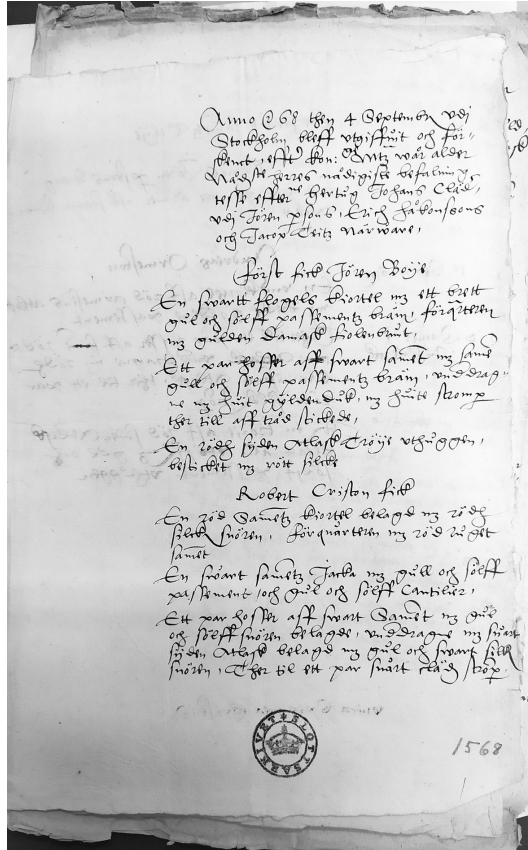 Anno @ 68 then 4 Septembr vdi
Stockholm bleff vtgiffuit och för-
skenct, effter kon: Mtz wår alder
Nådste herres nådigiste befalning
tesse effter:ne Hertug Johans Cläd,
vdi Jören psons, Erich håkonssons
och Jacop Teitz närware,
Först fick Jören Boije
En swartt flogels kiortel mz ett brett
gul och sölff passementz bräm, förqrteren
mz gulden Damask fiolenbrut,
Ett par hosser aff swart samet mz samme
gull och sölff passementz bräm, vnddrag-
ne mz huit gyldenduk, mz huite strömp
ther till aff tråd stickede,
En rödh syden Atlask Tröije vthuggen,
besticket mz rött silcke
Robert Criston fick
En röd Sametz kiortel belagd mz rödh
silck snören, förquarteren mz röd ruget
samet
En swart sametz Jacka mz gull och sölff
passement, och gul och sölff Cantilier,
Ett par hosser aff swart Samet mz gul
och sölff snören belagde, vnddragne mz swart
syden Atlask belagd mz gul och swart silk
snören, Ther til ett par swart cläds strömp
SLOTTSARKIVET
1568